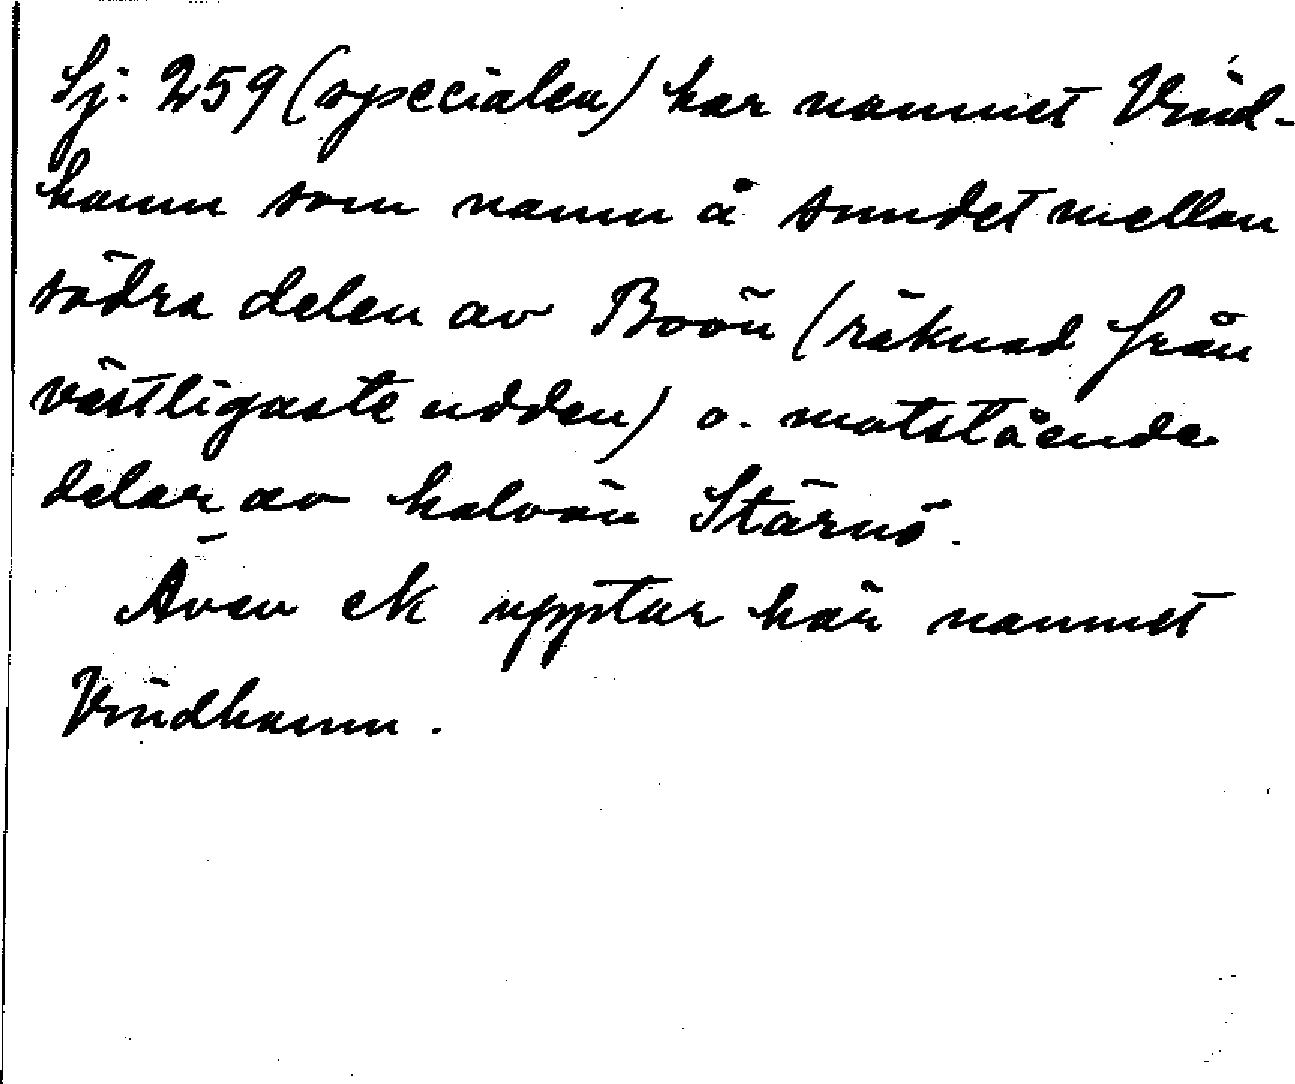 Sj: 259 (specialen) har namnet Vind-
hamn som namn å sundet mellan
södra delen av Boön (räknad från
västligaste udden) o. motstående
delar av halvön Stärnö.
Även ek upptar här namnet
Vindhamn.